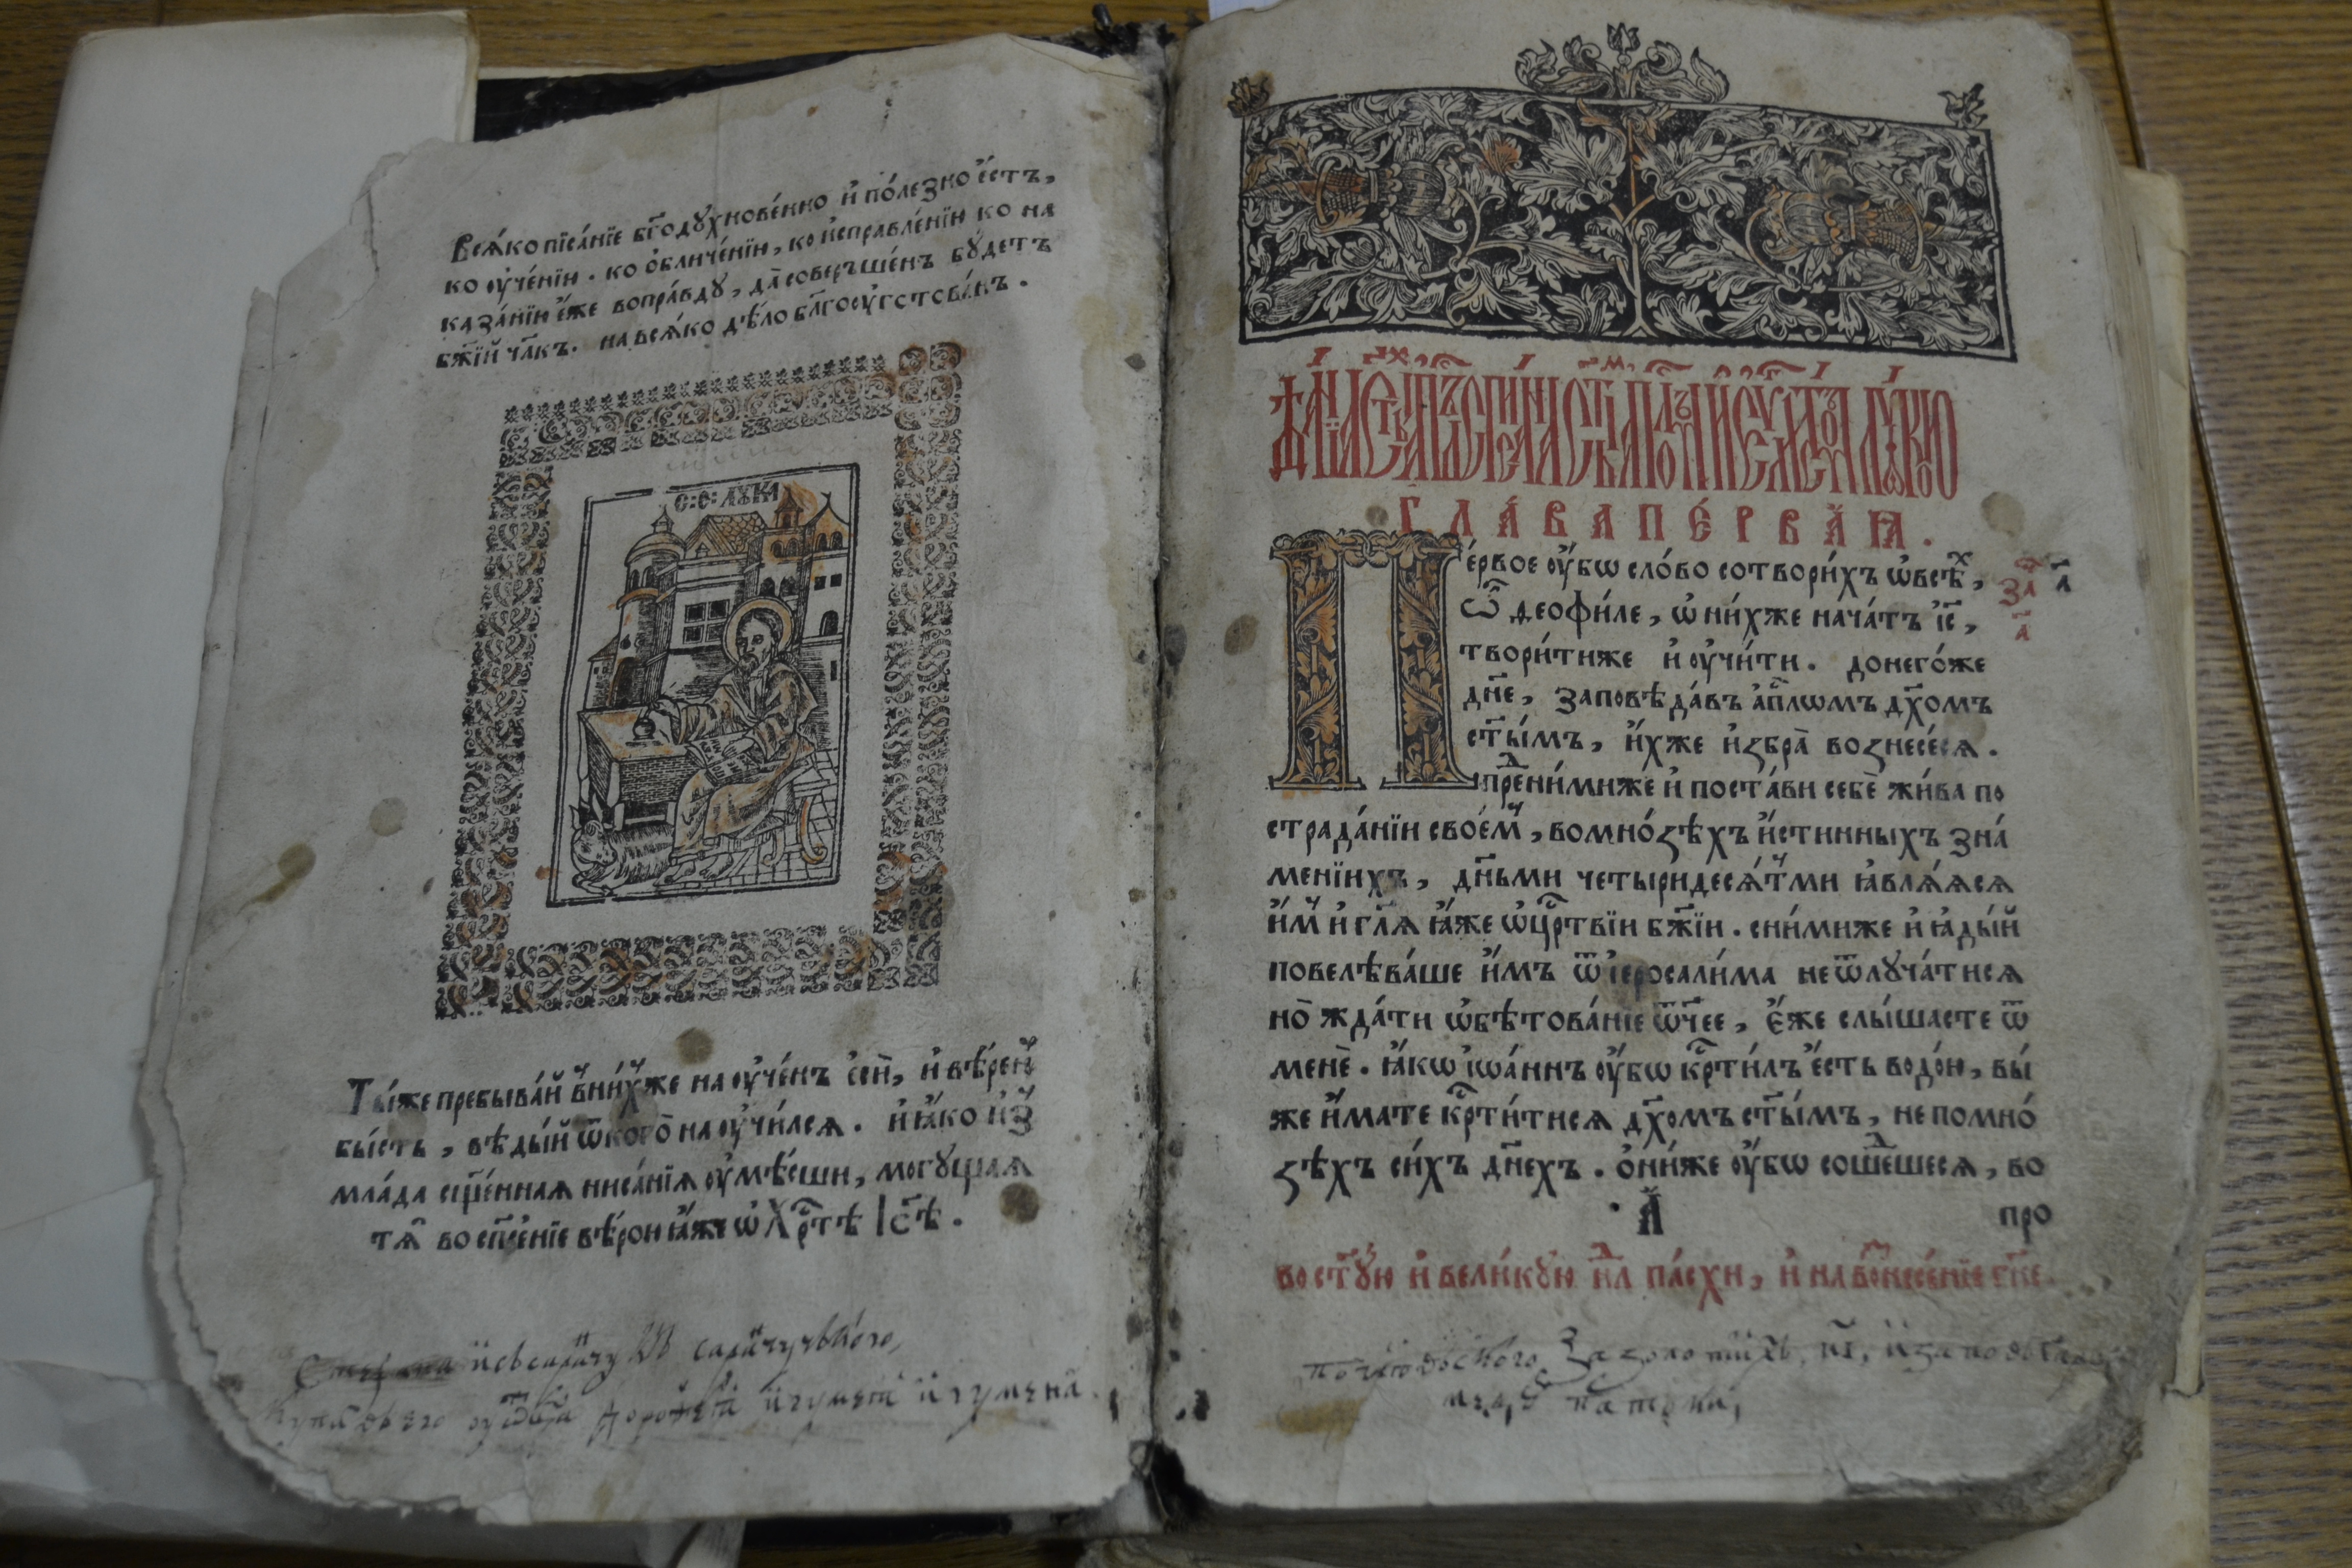 Всѧ́ко писа́нїе бг҃одꙋхнове́нно и҆ поле́зно є҆́сть,
ко ᲂу҆че́нїю. ко ѻ҆бличе́нїю, ко и҆справле́нїю ко на
каза́нїю е҆́же вопра́вдꙋ, да̀ соверъше́нъ бꙋ́детъ
бж҃їй чл҃къ. на всѧ́ко дѣ́ло бл҃гоᲂу҆гото́ванъ.
С: С: ЛꙊКА
Ты́же пребыва́й в̾ни́хже на ᲂу҆че́нъ є҆сѝ, и҆ вѣ́рен̾
бы́сть, вѣ́дый ѿкогѡ̀ на ᲂу҆чи́лсѧ. и҆ ꙗ҆́ко и҆з̾
мла́да сщ҃е́ннаѧ писа́нїѧ ᲂу҆мѣ́еши, могꙋщаѧ
тѧ̀ во сп҃се́нїе вѣ́рою ꙗ҆́же ѡ҆ Хрⷭ҇тѣ Іс҃ѣ.
ДѢА́НІѦ СТ҃Ы́ХЪ АПⷭ҇ЛЪ СПИ́САНА СТ҃Ы́МЪ АПⷭ҇ЛОМЪ И҆ Е҆VⷢЛИ́СТОМЪ ЛꙊКО́Ю
ГЛАВА ПЕ́РВАѦ.
Пе́рвое ᲂу҆́бѡ сло́во сотвори́хъ ѡ҆всѣⷯ,
ѽ деофи́ле, ѡ҆ ни́хже нача́тъ і҆с҃,
твори́тиже и҆ ᲂу҆чи́ти. донего́же
дн҃е, заповѣ́да́въ а҆пⷭ҇лѡмъ дх҃омъ
ст҃ы́мъ, и҆́хже и҆збра̀ вознесе́сѧ.
преⷣни́мижe и҆ поста́ви себѐ жи́ва по
страда́нїи свое́м̾, вомно́зѣхъ и҆́стинныхъ зна́
менїихъ, дн҃ьми четыридесѧ́т̾ми ꙗ҆влѧ́ѧсѧ
и҆́м̾ и҆ гл҃ѧ ꙗ҆́же ѡ҆црⷭ҇твїи бж҃їи. сни́миже и҆ ꙗ҆ды́й
повелѣва́ше и҆́мъ ѿі҆еросали́ма неѿлꙋча́тисѧ
но̀ жда́ти ѡ҆бѣтова́нїе ѻ҆ч҃ее, є҆́же слы́шасте ѿ
менѐ. ꙗ҆́кѡ і҆ѡа́ннъ ᲂу҆́бѡ крⷭ҇ти́лъ є҆́сть водо́ю, вы́
же и҆́мате крⷭ҇ти́тисѧ дх҃омъ ст҃ы́мъ, не помно́
зѣхъ си́хъ дн҃ехъ. ѻ҆ни́же ᲂу҆́бѡ сошеⷣшесѧ, во
за҃ а҃
а҃
а҃ про
во ст҃ꙋю и҆ вели́кꙋю нⷣлю па́схи, и҆ на вознесе́нїе гⷭ҇не.